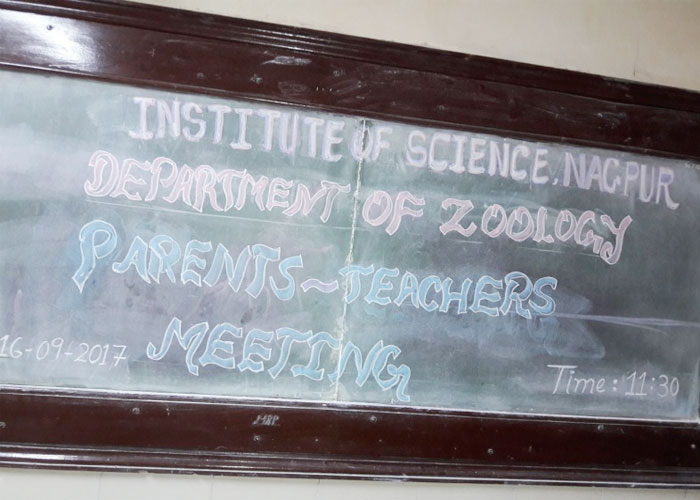 INSTITUTE OF SCIENCE, NAGPUR
DEPARTMENT OF ZOOLOGY
PARENTS-TEACHERS
MEETING
16-09-2017
Time: 11:30